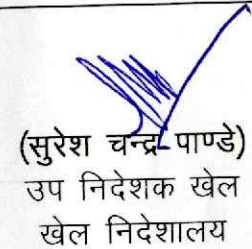 (सुरेश चन्द्र पाण्डे)
उप निदेशक खेल
खेल निदेशालय